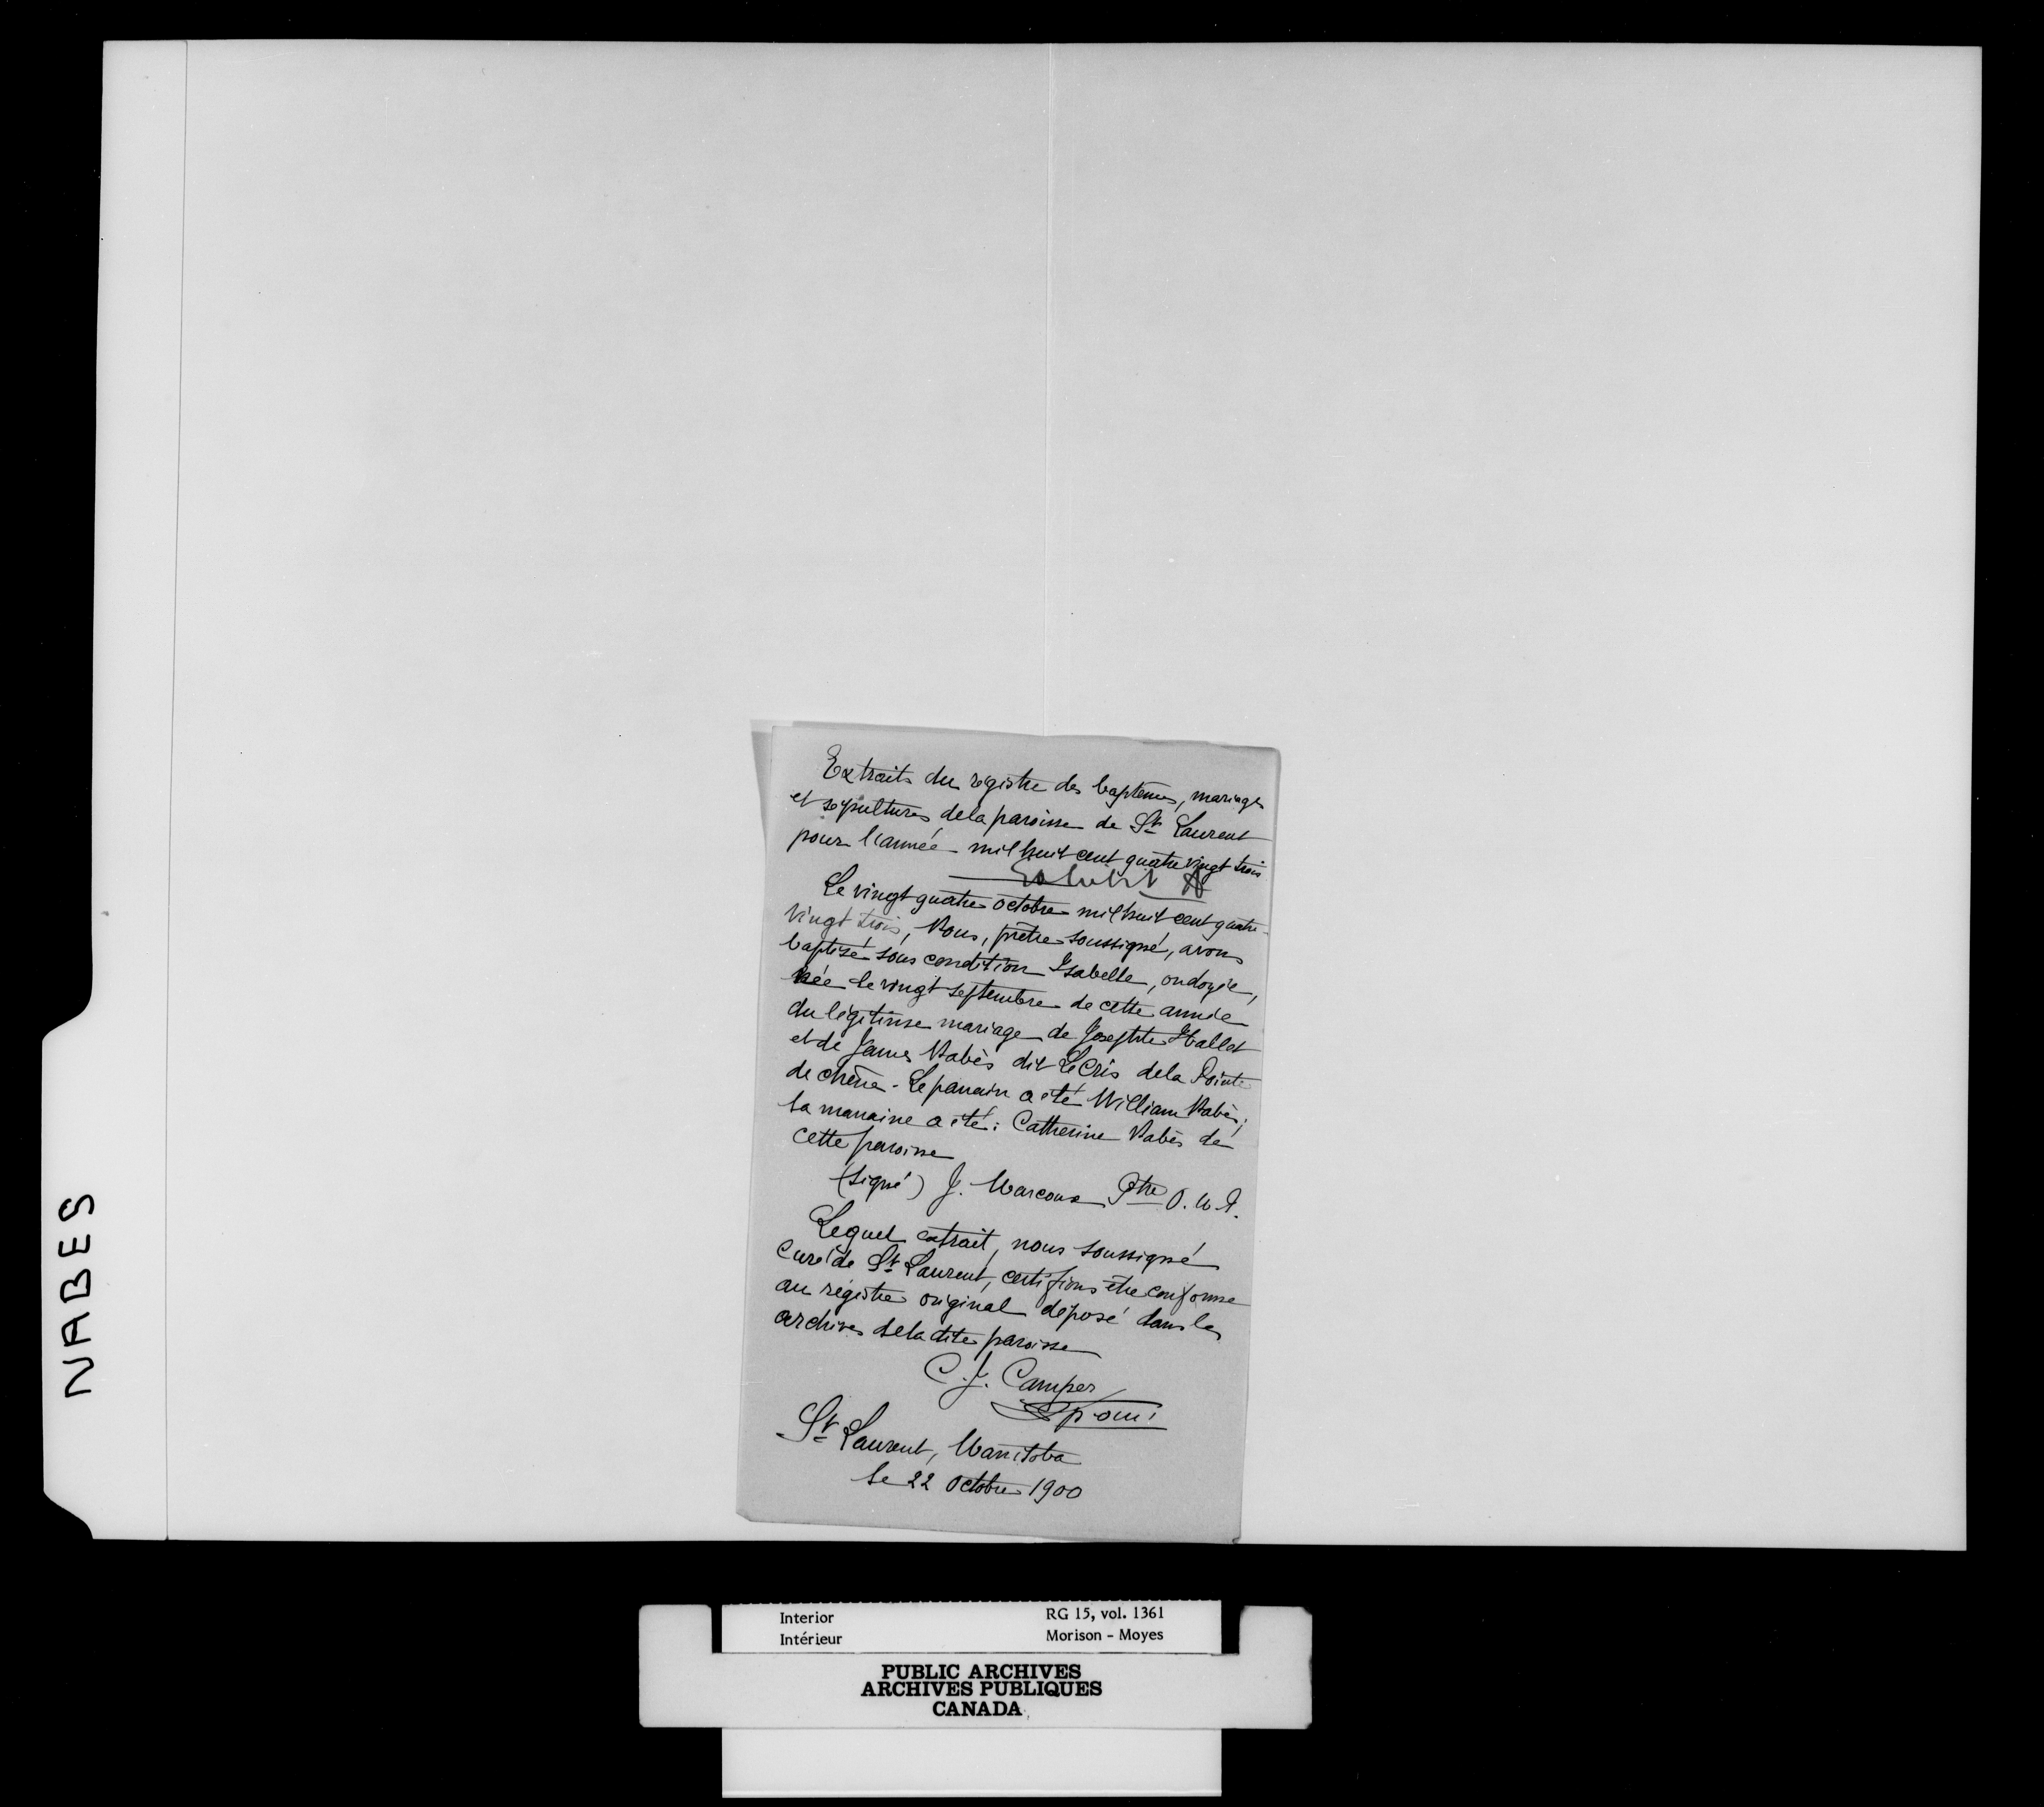 Extraits du régistre des baptêmes, mariages
et sépultures de la paroisse de St Laurent
pour l'année mil huit cent quatre vingt trois
Exhibit A
Le vingt quatre octobre mil huit cent quatre-
vingt trois, Nous, prêtre soussigné, avons
baptisé sous condition Isabelle, ondoyée,
née le vingt septembre de cette année
du légitime mariage de Josephte Hallet
et de James Nabès dit Le Cris de la Pointe
de chêne - Le parrain a été William Nabès;
la marraine a été: Catherine Nabès de
cette paroisse
(Signé) J. Marcoux Ptre O.M.I.
Lequel extrait, nous soussigné
Curé de St Laurent, certifions être conforme
au régistre original déposé dans les
archives de la dite paroisse
C. J. Camper
p. omi
St Laurent, Manitoba
le 22 Octobre 1900
NABES
Interior RG 15, vol. 1361
Intérieur Morison - Moyes
PUBLIC ARCHIVES
ARCHIVES PUBLIQUES
CANADA